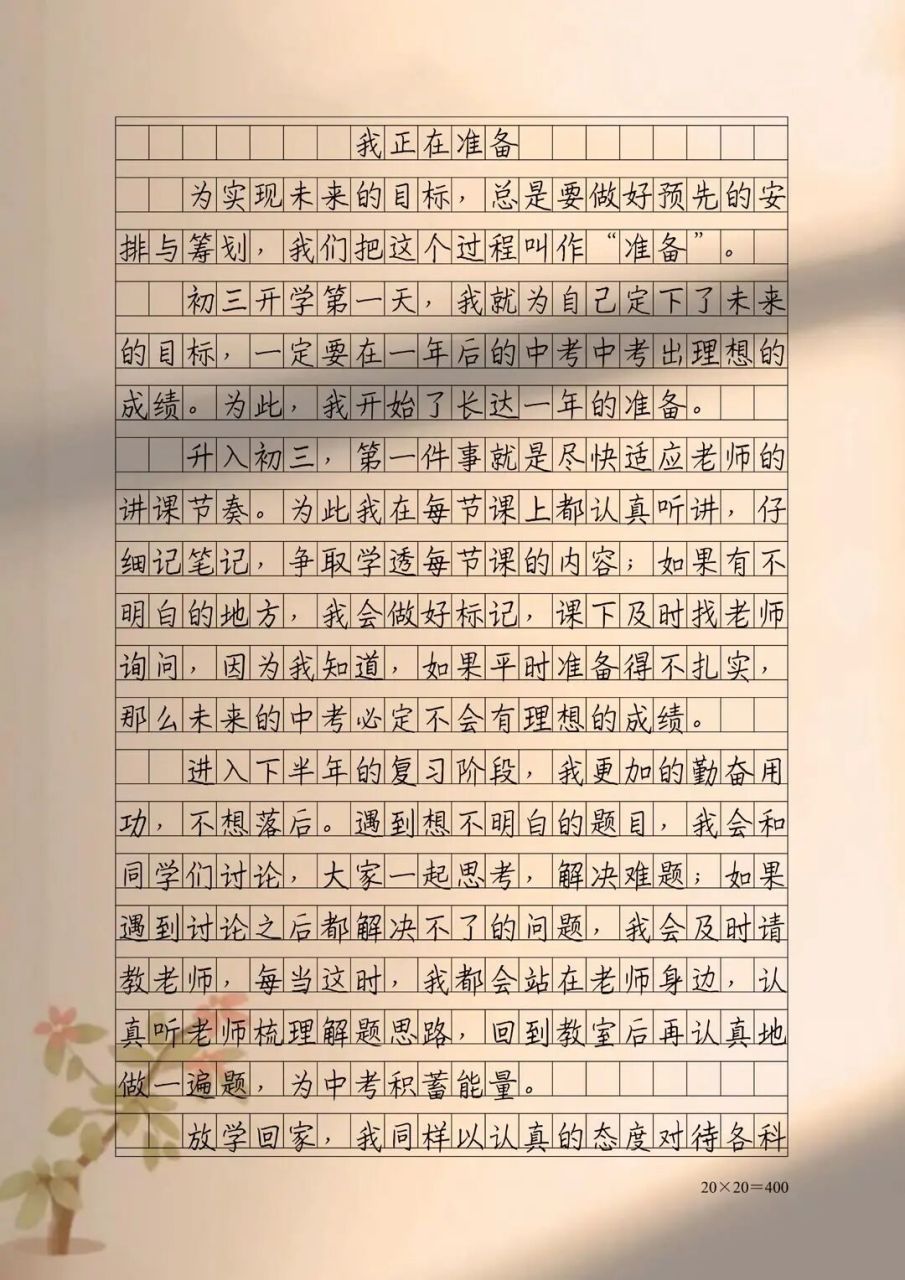 我正在准备
为实现未来的目标，总是要做好预先的安
排与筹划，我们把这个过程叫作“准备”。
初三开学第一天，我就为自己定下了未来
的目标，一定要在一年后的中考中考出理想的
成绩。为此，我开始了长达一年的准备。
升入初三，第一件事就是尽快适应老师的
讲课节奏。为此我在每节课上都认真听讲，仔
细记笔记，争取学透每节课的内容；如果有不
明白的地方，我会做好标记，课下及时找老师
询问，因为我知道，如果平时准备得不扎实，
那么未来的中考必定不会有理想的成绩。
进入下半年的复习阶段，我更加的勤奋用
功，不想落后。遇到想不明白的题目，我会和
同学们讨论，大家一起思考，解决难题；如果
遇到讨论之后都解决不了的问题，我会及时请
教老师，每当这时，我都会站在老师身边，认
真听老师梳理解题思路，回到教室后再认真地
做一遍题，为中考积蓄能量。
放学回家，我同样以认真的态度对待各科
20×20＝400